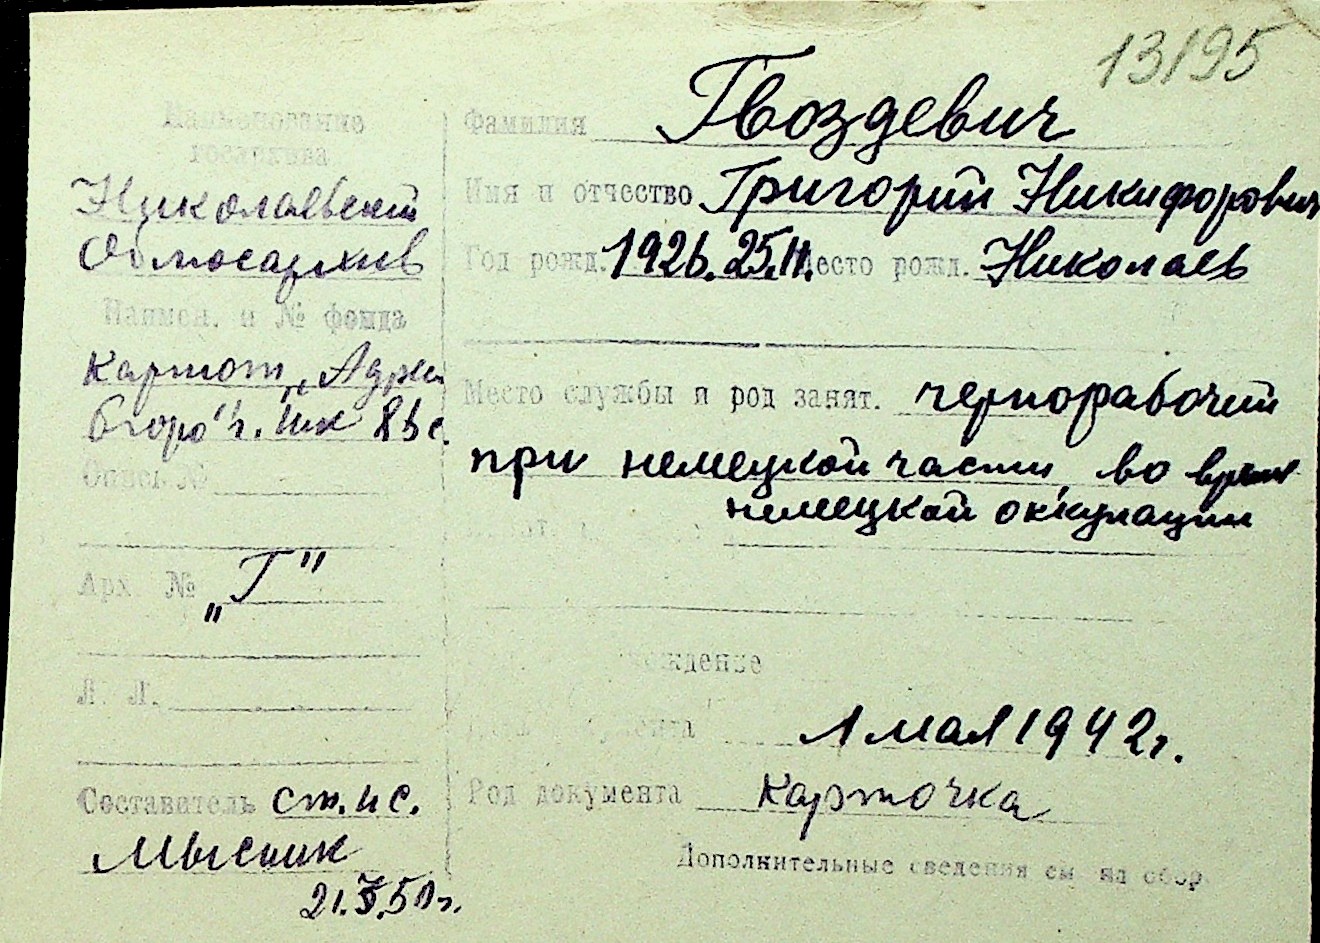 13195
Наименование
госархива
Николаевский
Облгосархив
Наимен. и № фонда
Картот. „Адресн.
бюро" г. Ник
Опись №
Арх. № „Г"
Л. Л.
Составитель ст. н с.
Мысник
21.X.50 г.
Фамилия Гвоздевич
Имя и отчество Григорий Никифорович
Год рожд. 1926. 25. Место рожд. Николаев
Место службы и род занят. чернорабочий
при немецкой части во время
немецкой оккупации
1 мая 1942 г.
Род документа Карточка
Дополнительные сведения см. на обор.